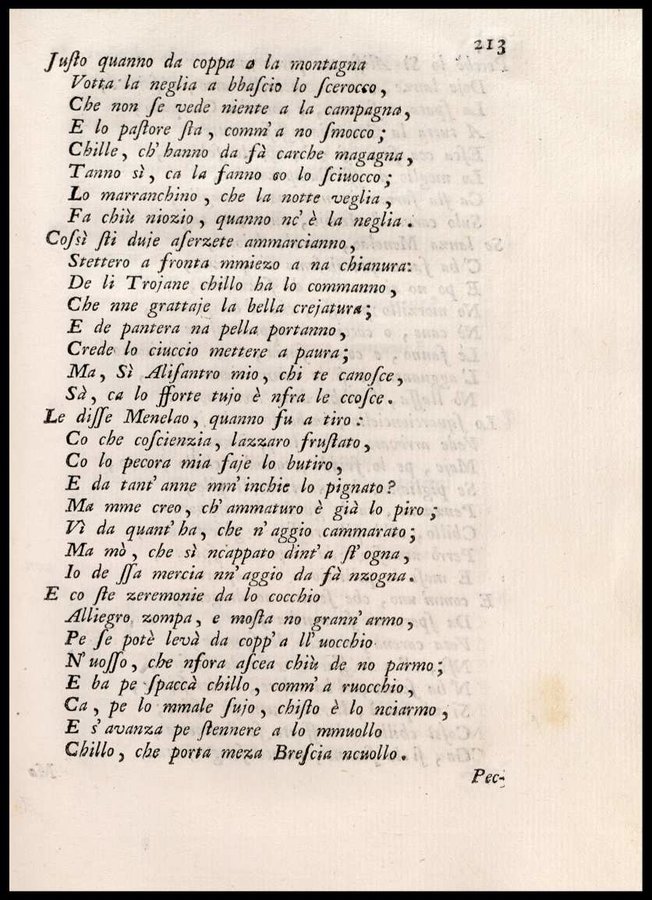 213
Juſto quanno da coppa a la montagna
Votta la neglia a bbaſcio lo ſcerocco,
Che non ſe vede niente a la campagna,
E lo paſtore ſta, comm'a no ſmocco;
Chille, ch'hanno da fà carche magagna,
Tanno sì, ca la fanno co lo ſciuocco;
Lo marranchino, che la notte veglia,
Fa chiù niozio, quanno nc'è la neglia.
Coſsì ſti duje aſerzete ammarcianno,
Stettero a fronta mmiezo a na chianura:
De li Trojane chillo ha lo commanno,
Che nne grattaje la bella crejatura;
E de pantera na pella portanno,
Crede lo ciuccio mettere a paura;
Ma, Sì Aliſantro mio, chi te canoſce,
Sà, ca lo fforte tujo è nfra le ccoſce.
Le diſſe Menelao, quanno fu a tiro:
Co che coſcienzia, lazzaro fruſtato,
Co la pecora mia faje lo butiro,
E da tant'anne mm'inchie lo pignato?
Ma mme creo, ch'ammaturo è già lo piro;
Vì da quant'ha, che n'aggio cammarato;
Ma mò, che sì ncappato dint'a ſt'ogna,
Io de ſſa mercia nn'aggio da fà nzogna.
E co ſte zeremonie da lo cocchio
Alliegro zompa, e moſta no grann'armo,
Pe ſe potè levà da copp'a ll'uocchio
N'uoſſo, che nfora aſcea chiù de no parmo;
E ba pe ſpaccà chillo, comm'a ruocchio,
Ca, pe lo mmale ſujo, chiſto è lo nciarmo,
E s'avanza pe ſtennere a lo mmuollo
Chillo, che porta meza Breſcia ncuollo.
Pec-